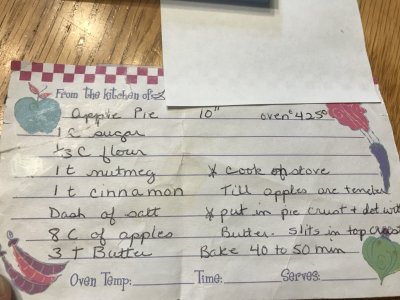 From the kitchen of
Apple Pie 10" oven° 425°
1 C sugar
1/3 C flour
1 t nutmeg * cook of stove
1 t cinnamon Till apples are tender
Dash of salt * put in pie crust + dot with
8 C of apples Butter. slits in top crust
3 T Butter Bake 40 to 50 min
Oven Temp: Time: Serves: